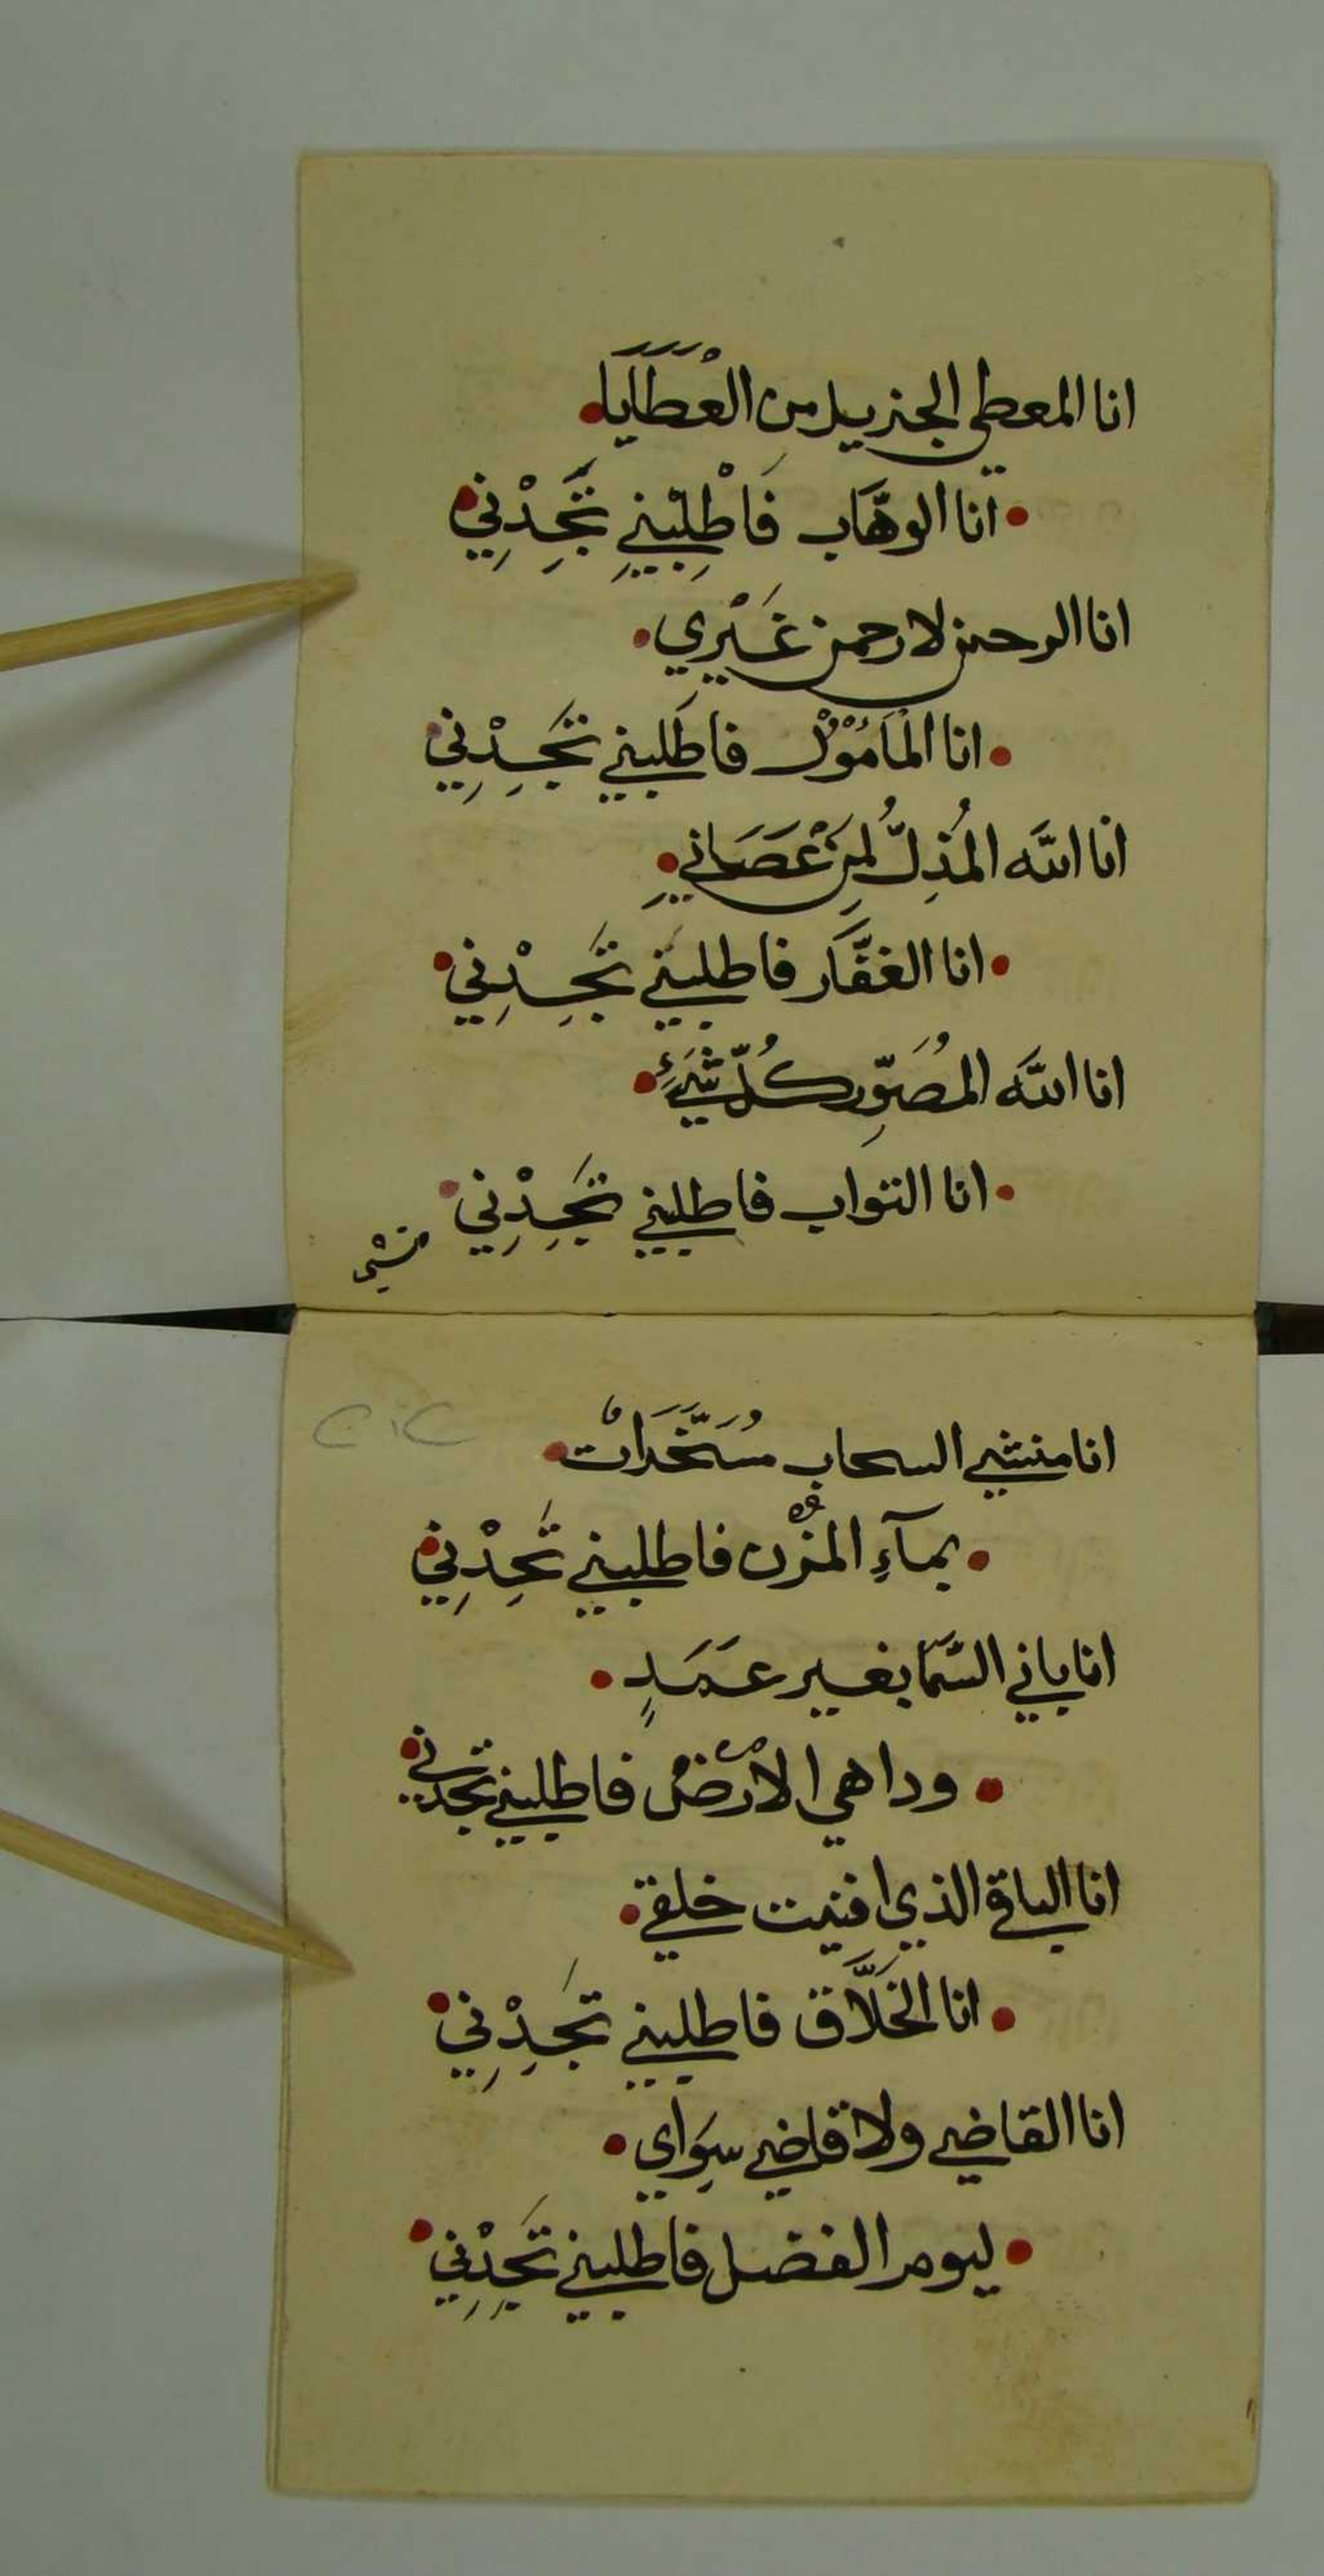 انا المعطي الجزيل من الْعَطَايَا
انا الوهَّاب فَاطْلِبْنِي تَجِدْنِي
انا الرحمن لا رحمن غَيْرِي
انا الْمَامُوْل فاطلبني تَجِدْنِي
انا اللَّه المُذِلُّ لِمَنْ عَصَانِي
انا الغفَّار فاطلبني تَجِدْنِي
انا اللَّه المُصَوِّر كُلّ شَيْءٍ
انا التواب فاطلبني تَجِدْنِي
انا منشي السحاب مُسَخَّرَاتْ
بمآءِ المزْن فاطلبني تَجِدْنِي
انا باني السَّمَا بغير عَمَدٍ
وداهي الارْضْ فاطلبني تجدني
انا الباقي الذي افنيت خلقي
انا الخَلَّاق فاطلبني تَجِدْنِي
انا القاضي ولا قاضي سِوَاي
ليوم الفصل فاطلبني تَجِدْنِي